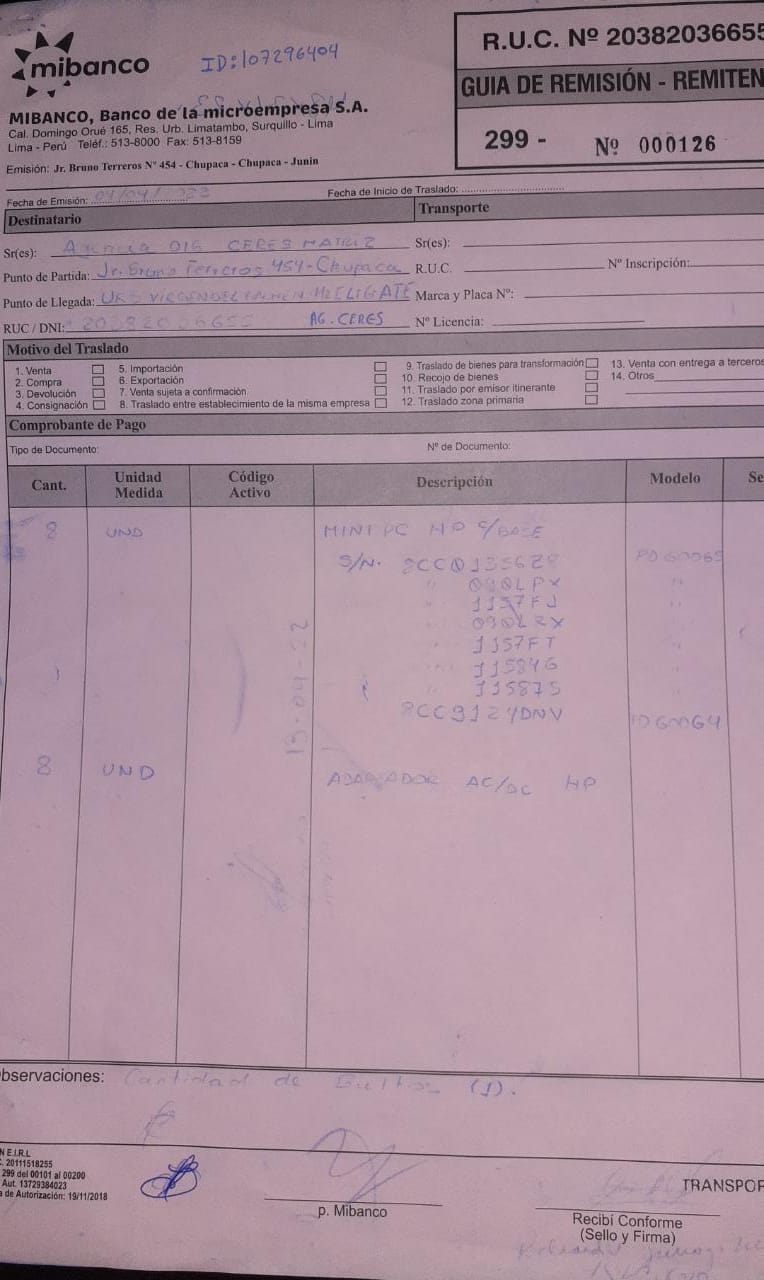 mibanco
ID:107296404
R.U.C. Nº 2038203665
GUIA DE REMISIÓN - REMITEN
299 - Nº 000126
MIBANCO, Banco de la microempresa S.A.
Cal. Domingo Orué 165, Res. Urb. Limatambo, Surquillo - Lima
Lima - Perú Teléf.: 513-8000 Fax: 513-8159
Emisión: Jr. Bruno Terreros Nº 454 - Chupaca - Chupaca - Junin
Fecha de Emisión: 04/04/
Fecha de Inicio de Traslado:
Destinatario
Transporte
Sr(es): Agencia 016 CERES MATRIZ
Sr(es):
Punto de Partida: Jr. Bruno Terreros 454-Chupaca
R.U.C.
Nº Inscripción:
Punto de Llegada: URB VIRGEN DEL CARMEN
Marca y Placa Nº:
RUC / DNI: 20382036655 AG. CERES
Nº Licencia:
Motivo del Traslado
1. Venta
2. Compra
3. Devolución
4. Consignación
5. Importación
6. Exportación
7. Venta sujeta a confirmación
8. Traslado entre establecimiento de la misma empresa
9. Traslado de bienes para transformación
10. Recojo de bienes
11. Traslado por emisor itinerante
12. Traslado zona primaria
13. Venta con entrega a terceros
14. Otros
Comprobante de Pago
Tipo de Documento:
Nº de Documento:
Cant. Unidad Medida Código Activo Descripción Modelo Se
8 UND MINI PC HP C/BASE
S/N. 8CC0135628
" 090LPX "
" 1157FJ "
" 090LRX "
" 1157FT "
" 11584G "
" 115875 "
8CC9124DNV
13-04-22
8 UND ADAPTADOR AC/DC HP
bservaciones: Cantidad de Bultos (1).
N E.I.R.L
. 20111518255
299 del 00101 al 00200
Aut. 13729384023
a de Autorización: 19/11/2018
p. Mibanco
TRANSPOR
Recibí Conforme
(Sello y Firma)